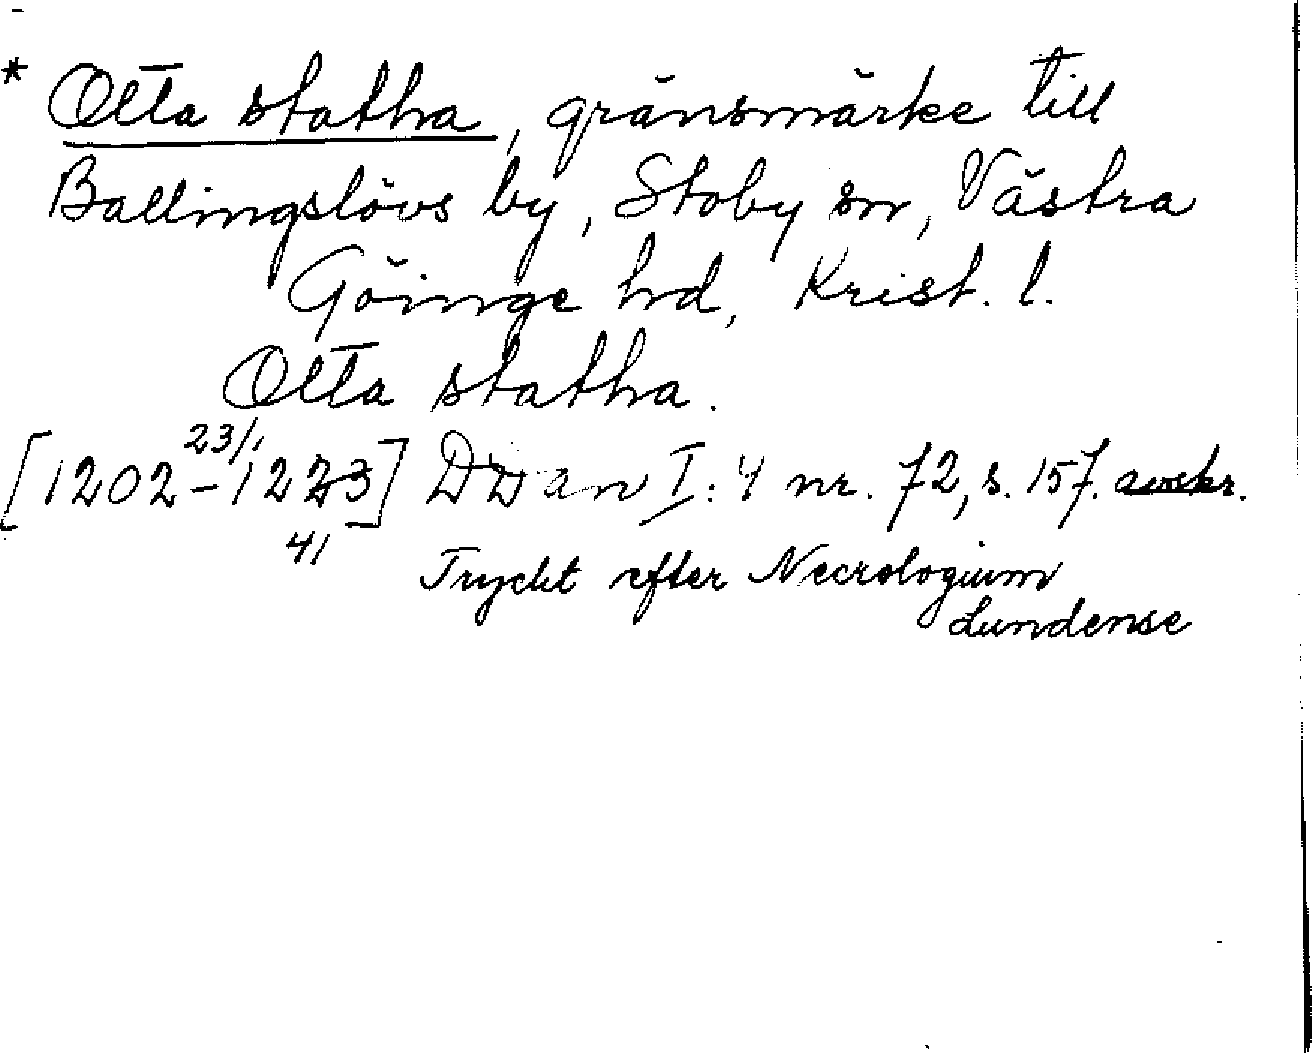 * Olta statha, gränsmärke till
Ballingslövs by, Stoby sn, Västra
Göinge hd, Krist. l.
Olta statha.
23/1
[1202-1223] DDan I:4 nr. 72, s. 157. avskr.
41
Tryckt efter Necrologium
Lundense